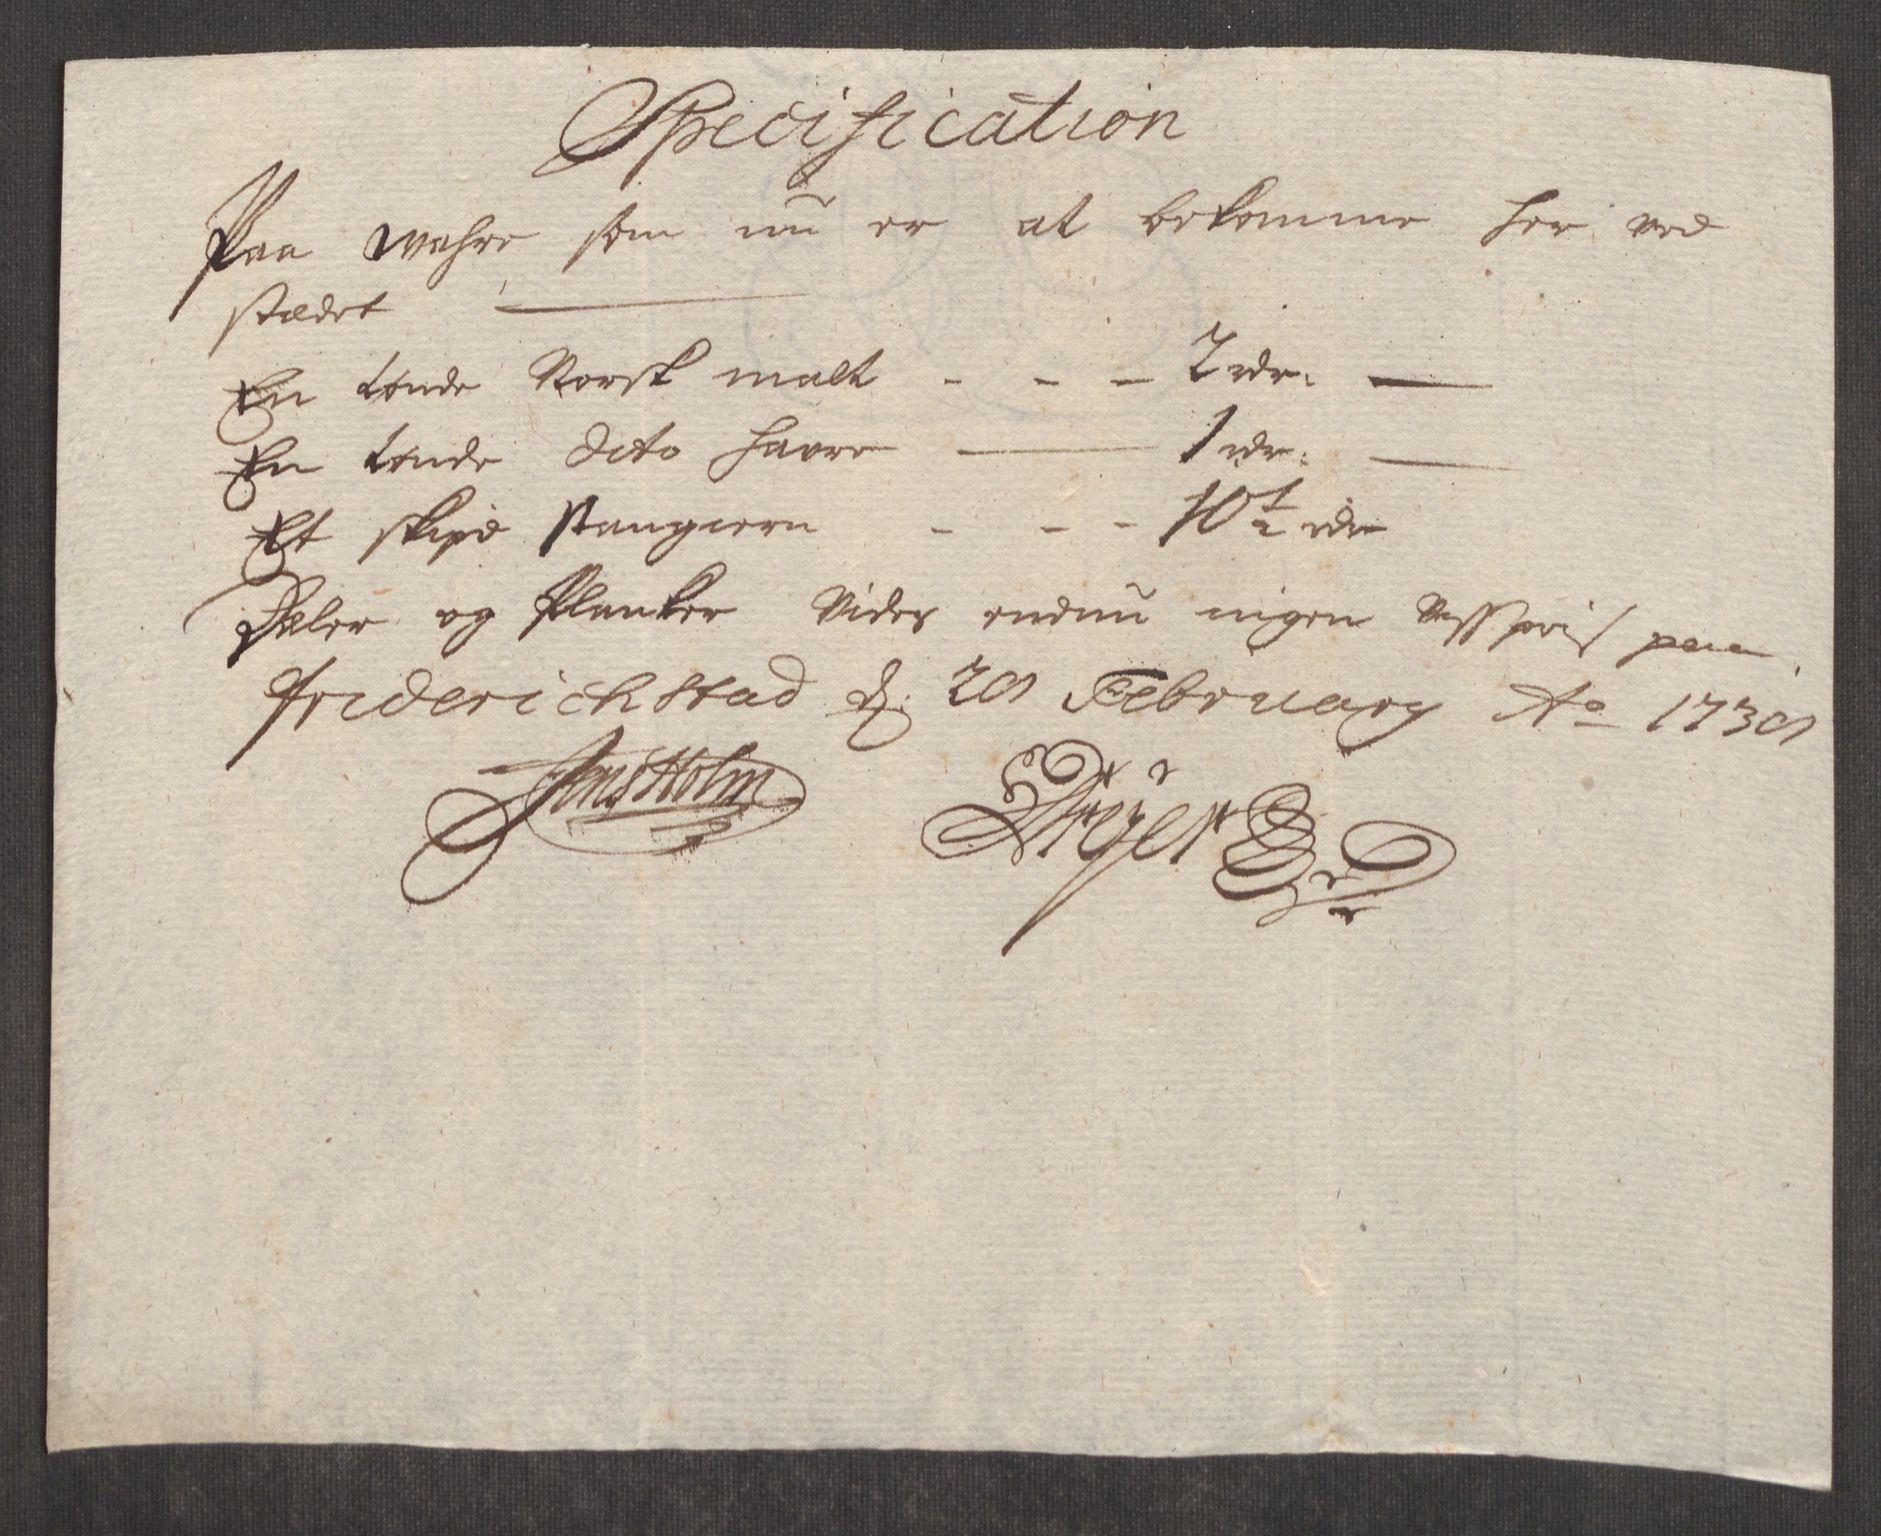 Specification
Paa wahre som nu er at bekomme her ved
stædet
En tønde Norsk malt - - - 2 rdr.
En tønde dito havre 1 rdr.
Et skipd stangiern - - - 10½ rdr
Dæler og Planker Vides endnu ingen Viss pris paa
Friderichstad d. 20 February Ao 1730
Jens Holm Dreÿer